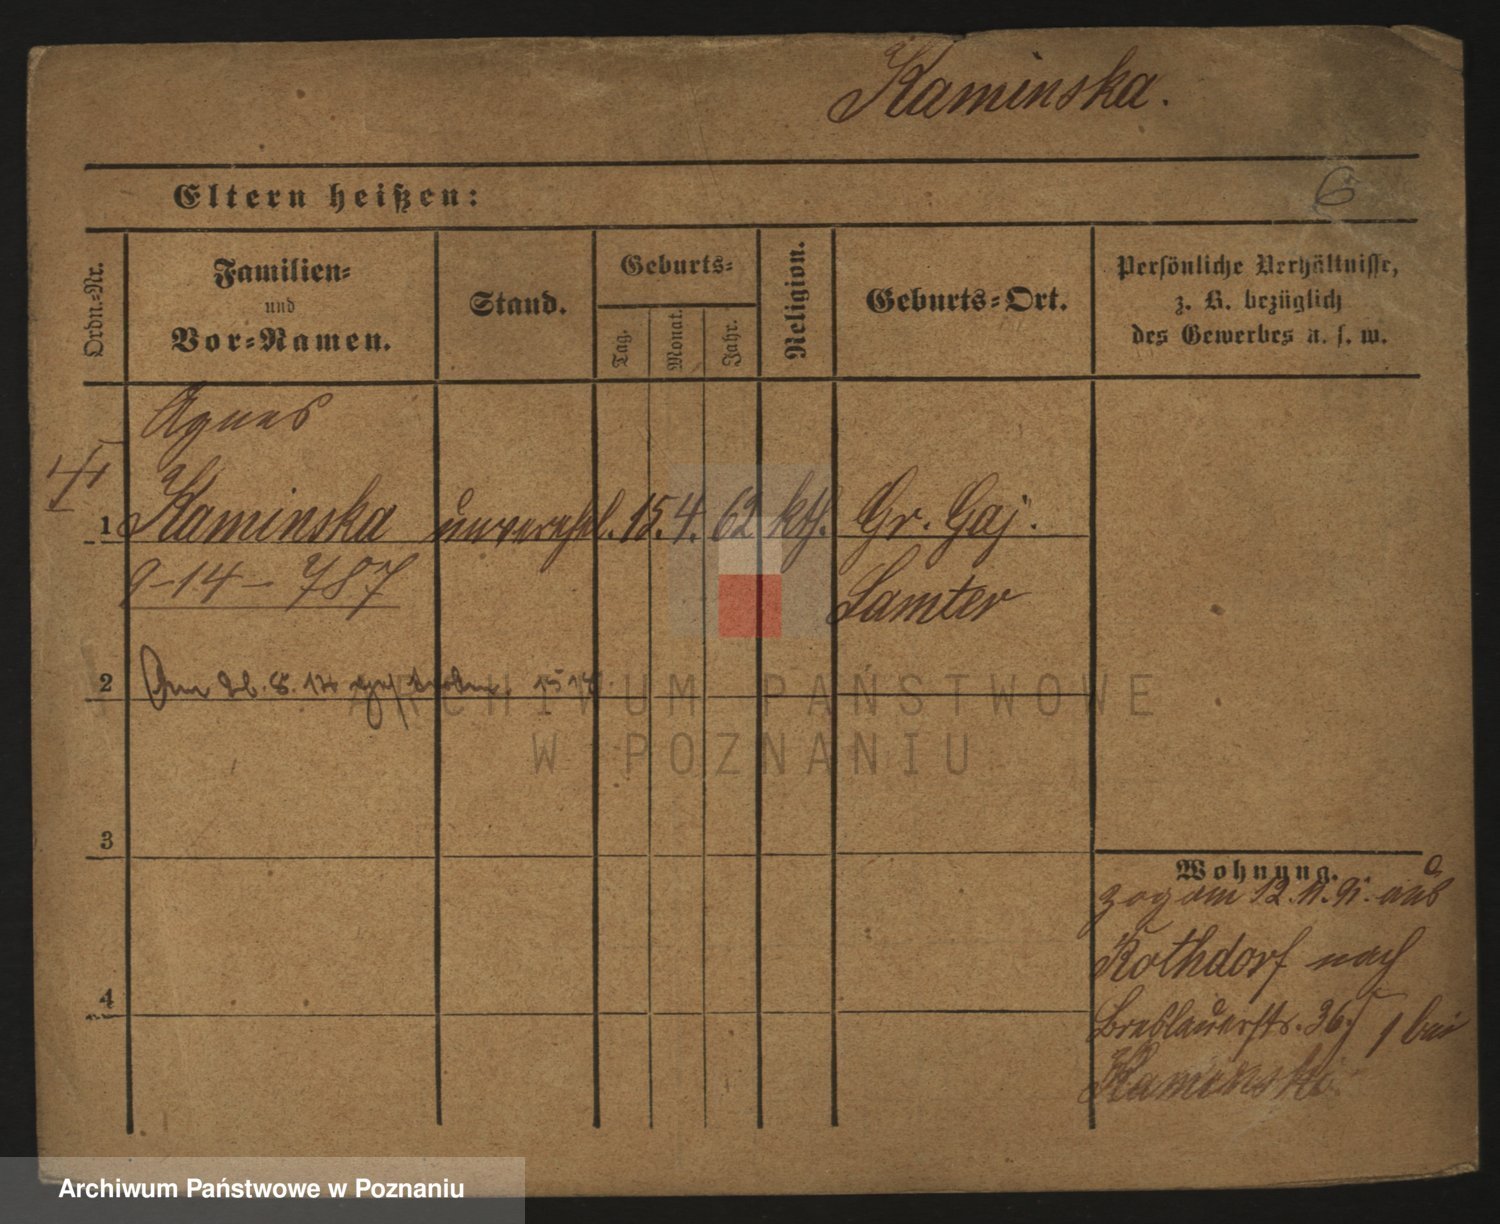 Kaminska.
Eltern heißen:
6
Ordn.-Nr.
Familien-
und
Vor-Namen.
Stand.
Geburts-
Tag.
Monat.
Jahr.
Religion.
Geburts-Ort.
Persönliche Verhältnisse,
z. B. bezüglich
des Gewerbes u. s. w.
Agnes
1 Kaminska unverehl. 15. 4. 62 kth. Gr. Gaj.
9-14-787 Samter
2 Am 26. 8. 14 gestorben.
ARCHIWUM PAŃSTWOWE
W POZNANIU
3
Wohnung.
zog am 12. 11. 91. aus
Kothdorf nach
4
Breslauerstr. 36. bei
Kaminski.
Archiwum Państwowe w Poznaniu